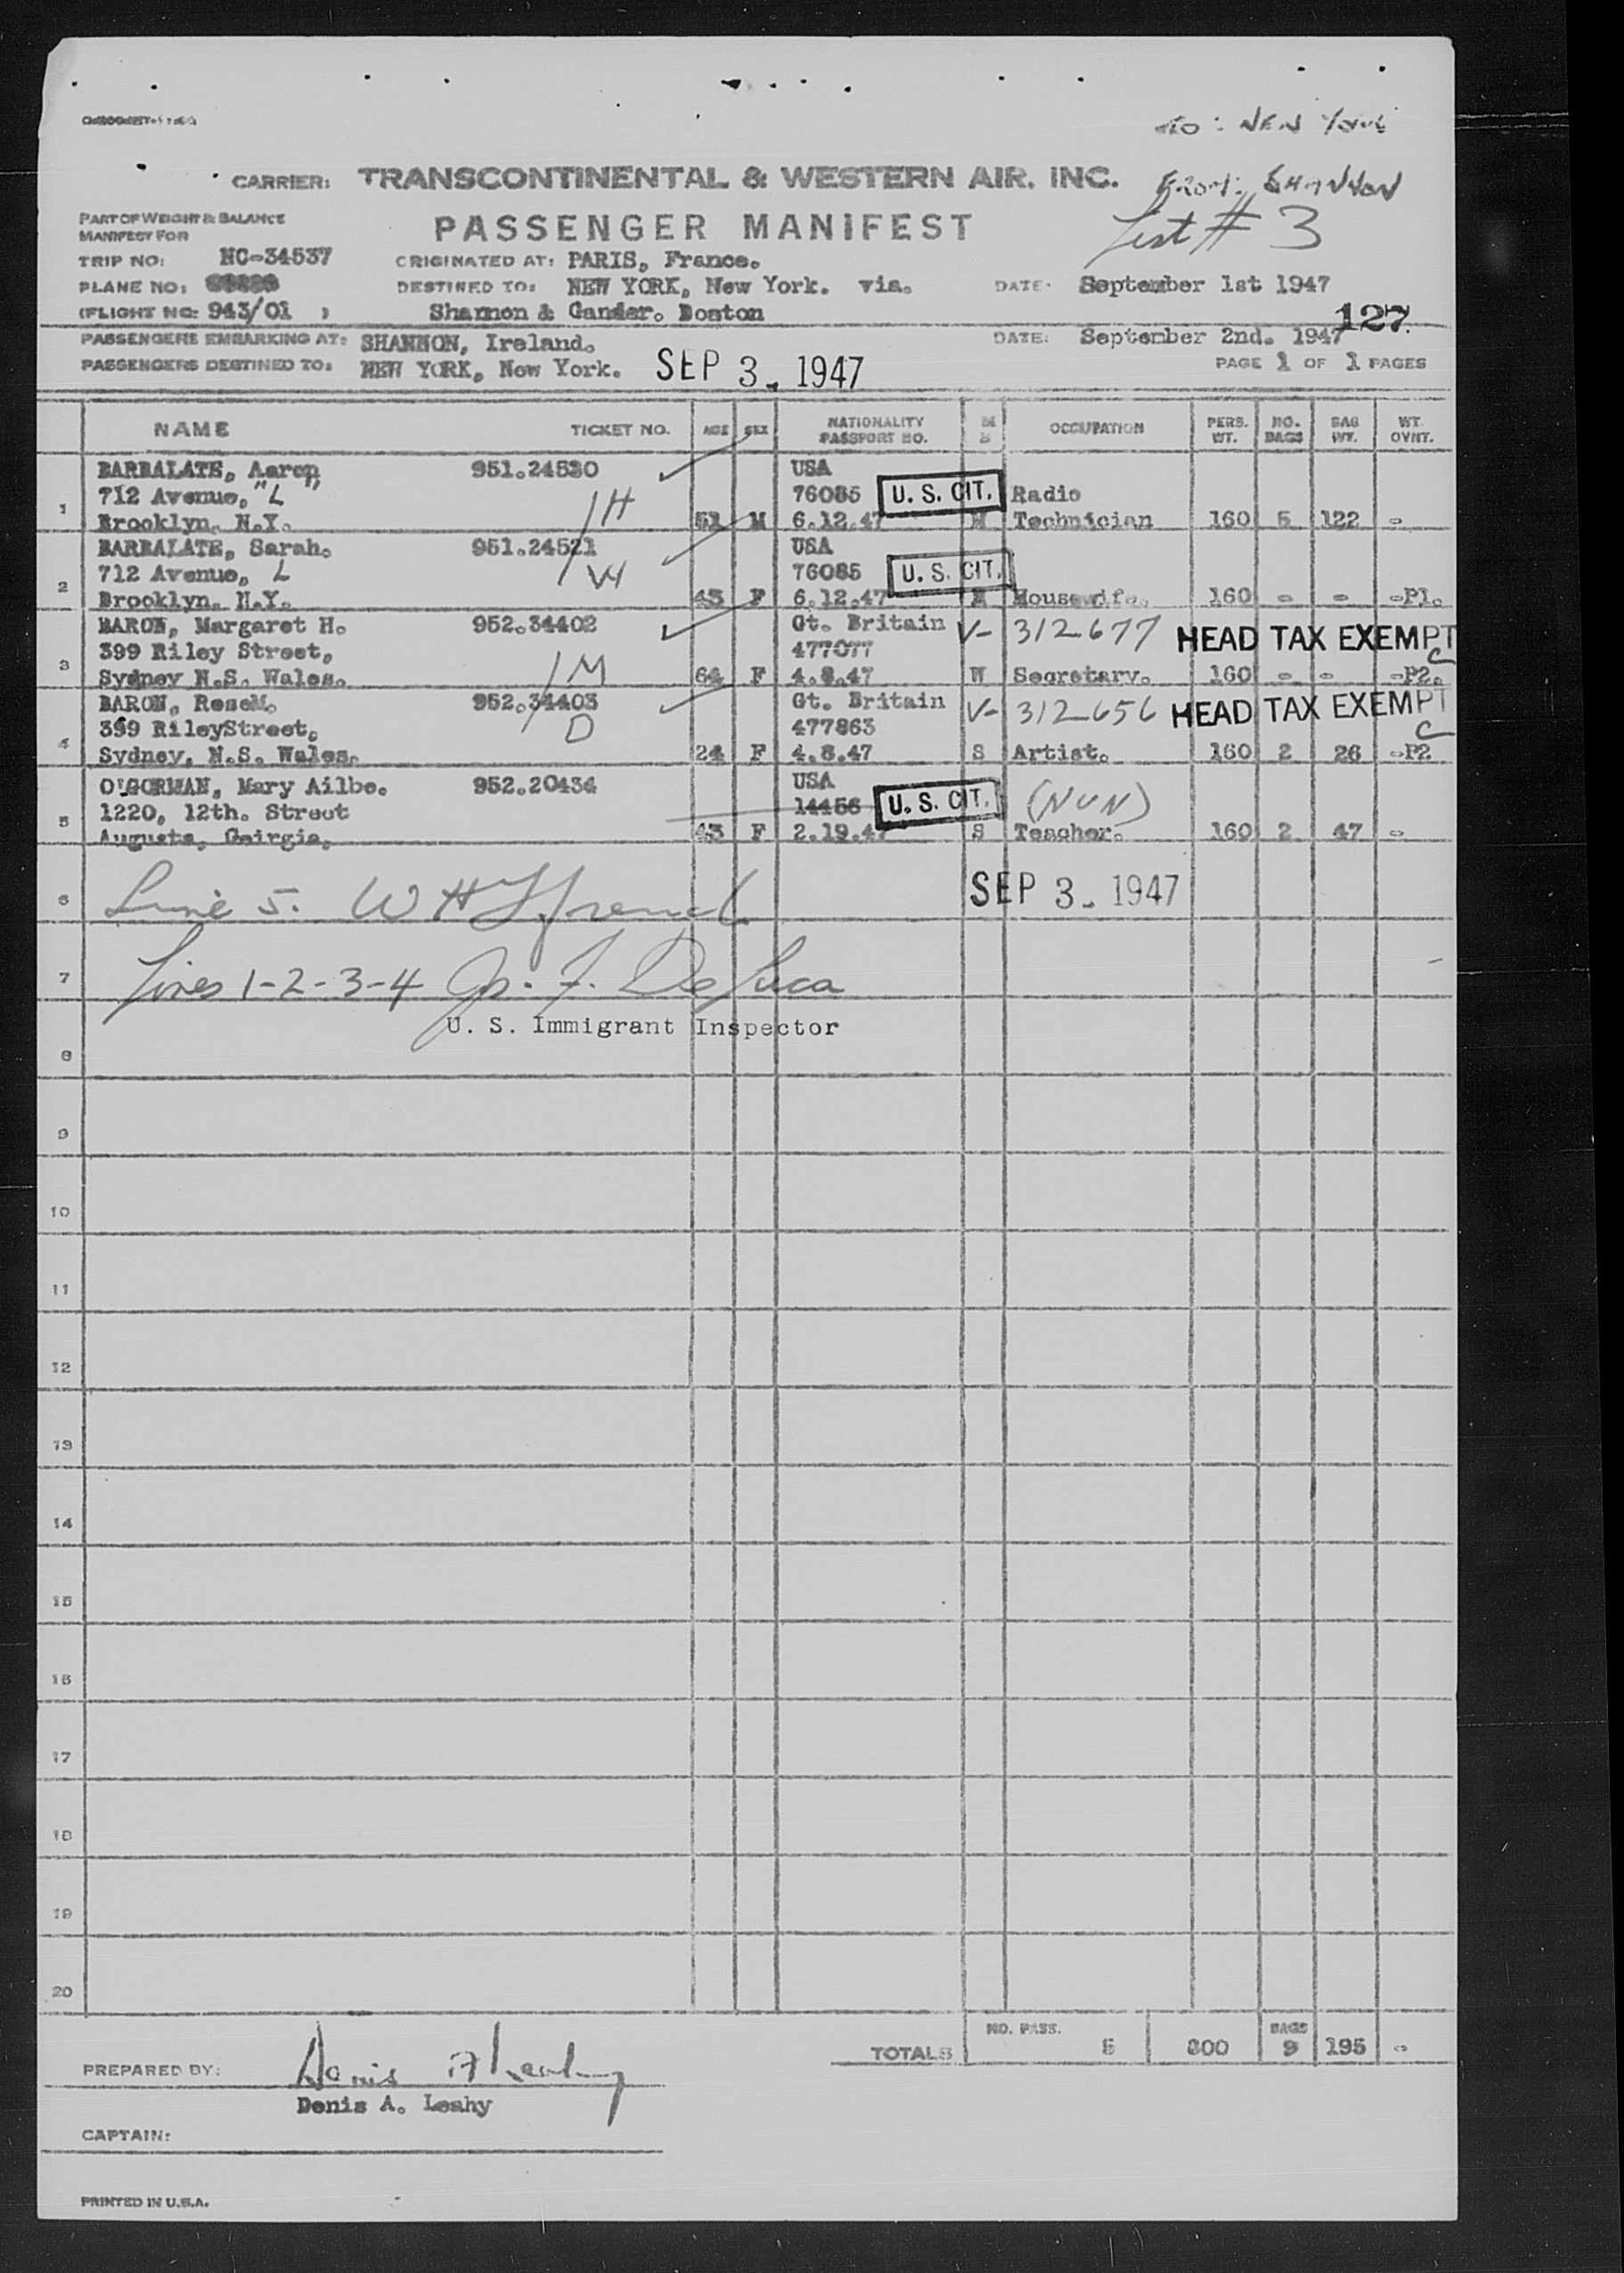 TO: NEW YORK
CARRIER: TRANSCONTINENTAL & WESTERN AIR. INC. FROM: SHANNON
PART OF WEIGHT & BALANCE PASSENGER MANIFEST List # 3
MANIFEST FOR
TRIP NO: NC-34537 ORIGINATED AT: PARIS, France.
PLANE NO: DESTINED TO: NEW YORK, New York. via. DATE: September 1st 1947
(FLIGHT NO: 943/01 ) Shannon & Gander. Boston 127.
PASSENGERS EMBARKING AT: SHANNON, Ireland. DATE: September 2nd. 1947
PASSENGERS DESTINED TO: NEW YORK, New York. SEP 3. 1947 PAGE 1 OF 1 PAGES
NAME TICKET NO. AGE SEX NATIONALITY PASSPORT NO. M S OCCUPATION PERS. WT. NO. BAGS BAG WT. WT. OVNT.
BARBALATE, Aaron 951.24520 USA
712 Avenue, "L" /H 76085 U. S. CIT. Radio
1 Brooklyn. N.Y. 51 M 6.12.47 M Technician 160 5 122 -
BARBALATE, Sarah. 951.24521 USA
712 Avenue, L /W 76085 U. S. CIT.
2 Brooklyn. N.Y. 43 F 6.12.47 M Housewife. 160 - - -P1.
BARON, Margaret H. 952.34402 Gt. Britain V- 312677 HEAD TAX EXEMPT
399 Riley Street, /M 477077 C
3 Sydney N.S. Wales. 64 F 4.8.47 W Secretary. 160 - - -P2.
BARON, RoseM. 952.34403 Gt. Britain V- 312656 HEAD TAX EXEMPT
399 RileyStreet, /D 477863 C
4 Sydney. N.S. Wales. 24 F 4.8.47 S Artist. 160 2 26 -P2
O'GORMAN, Mary Ailbe. 952.20434 USA
1220, 12th. Street 14456 U. S. CIT. (NUN)
5 Augusta, Geirgia. 43 F 2.19.47 S Teacher. 160 2 47 -
6 Line 5. W H Ffrench SEP 3. 1947
7 Lines 1-2-3-4 Jos. F. DeLuca
U. S. Immigrant Inspector
8
9
10
11
12
13
14
15
16
17
18
19
20
TOTALS NO. PASS. 5 800 BAGS 9 195 -
PREPARED BY: Denis A Leahy
Denis A. Leahy
CAPTAIN:
PRINTED IN U.S.A.